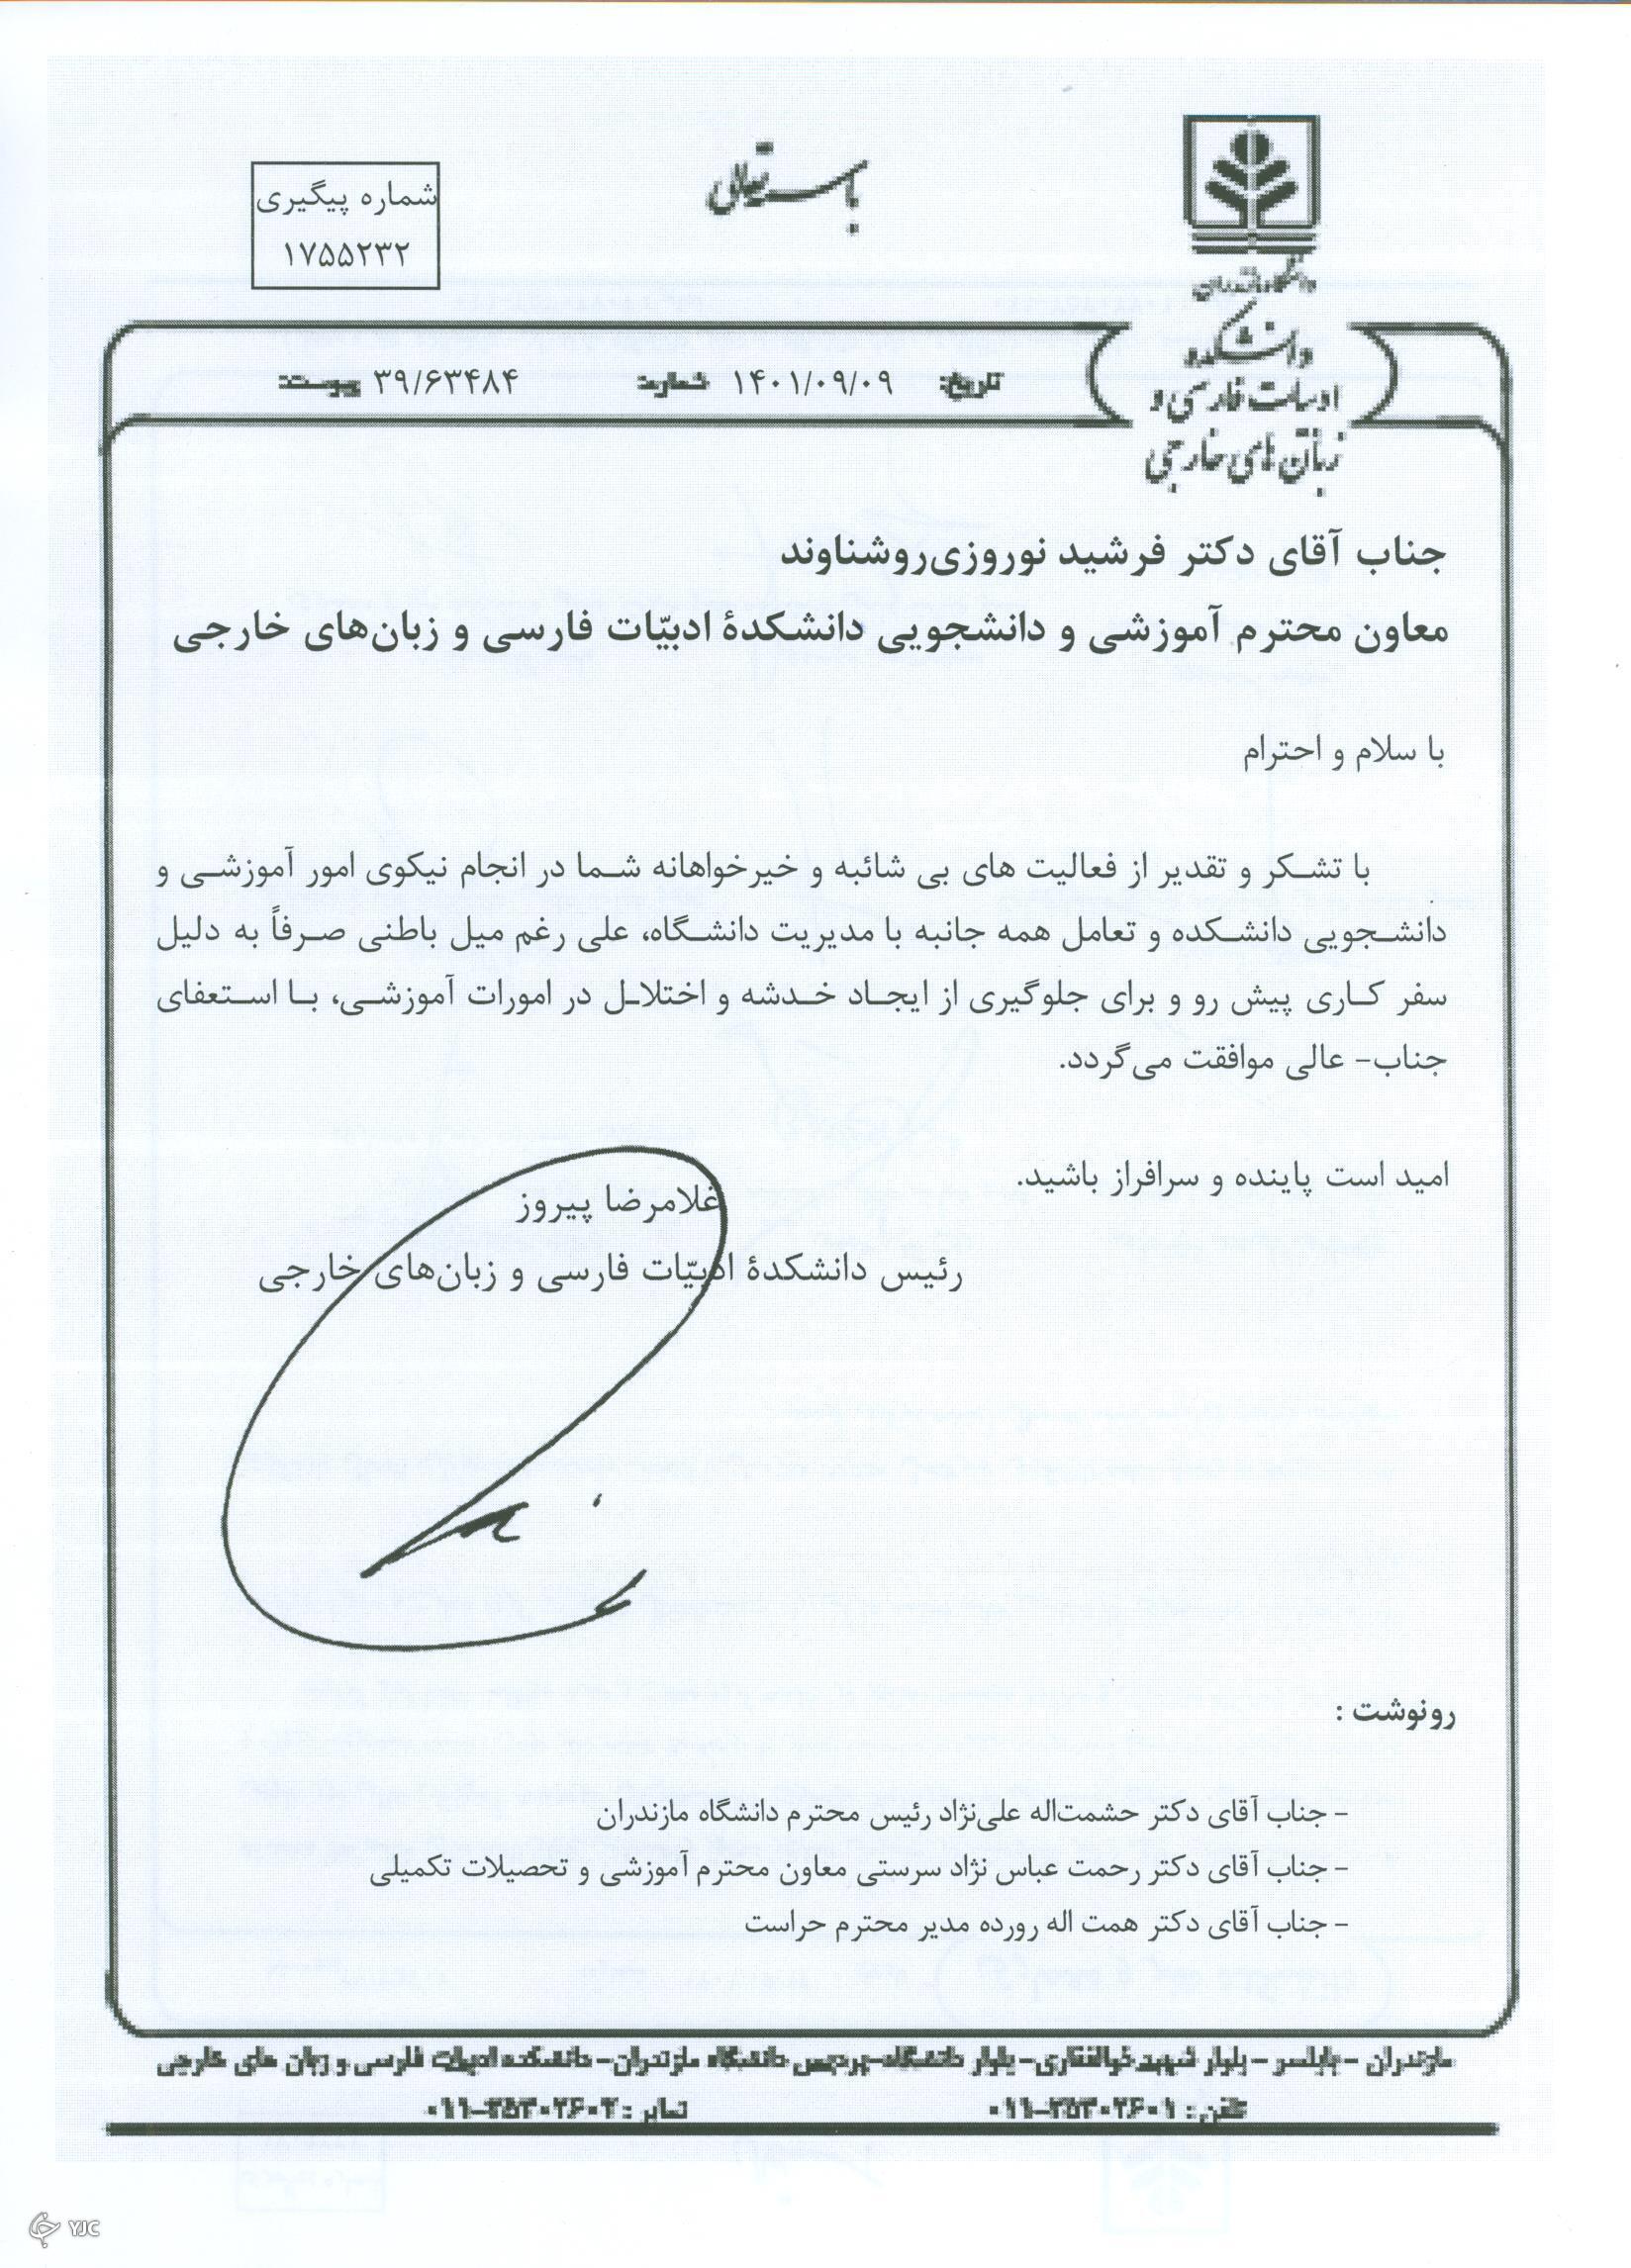 باسمه‌تعالی
شماره پیگیری
۱۷۵۵۲۳۲
دانشگاه مازندران
دانشکده
ادبیات فارسی و
زبان های خارجی
تاریخ: ۱۴۰۱/۰۹/۰۹ شماره: ۳۹/۶۳۴۸۴ پیوست:
جناب آقای دکتر فرشید نوروزی‌روشناوند
معاون محترم آموزشی و دانشجویی دانشکدهٔ ادبیّات فارسی و زبان‌های خارجی
با سلام و احترام
با تشکر و تقدیر از فعالیت های بی شائبه و خیرخواهانه شما در انجام نیکوی امور آموزشی و
دانشجویی دانشکده و تعامل همه جانبه با مدیریت دانشگاه، علی رغم میل باطنی صرفاً به دلیل
سفر کاری پیش رو و برای جلوگیری از ایجاد خدشه و اختلال در امورات آموزشی، با استعفای
جناب- عالی موافقت می‌گردد.
امید است پاینده و سرافراز باشید.
غلامرضا پیروز
رئیس دانشکدهٔ ادبیّات فارسی و زبان‌های خارجی
رونوشت :
- جناب آقای دکتر حشمت‌اله علی‌نژاد رئیس محترم دانشگاه مازندران
- جناب آقای دکتر رحمت عباس نژاد سرستی معاون محترم آموزشی و تحصیلات تکمیلی
- جناب آقای دکتر همت اله رورده مدیر محترم حراست
مازندران - بابلسر - بلوار شهید ذوالفقاری - بلوار دانشگاه-پردیس دانشگاه مازندران- دانشکده ادبیات فارسی و زبان های خارجی
تلفن: ۰۱۱-۳۵۳۰۲۶۰۱ نمابر: ۰۱۱-۳۵۳۰۲۶۰۲
YJC